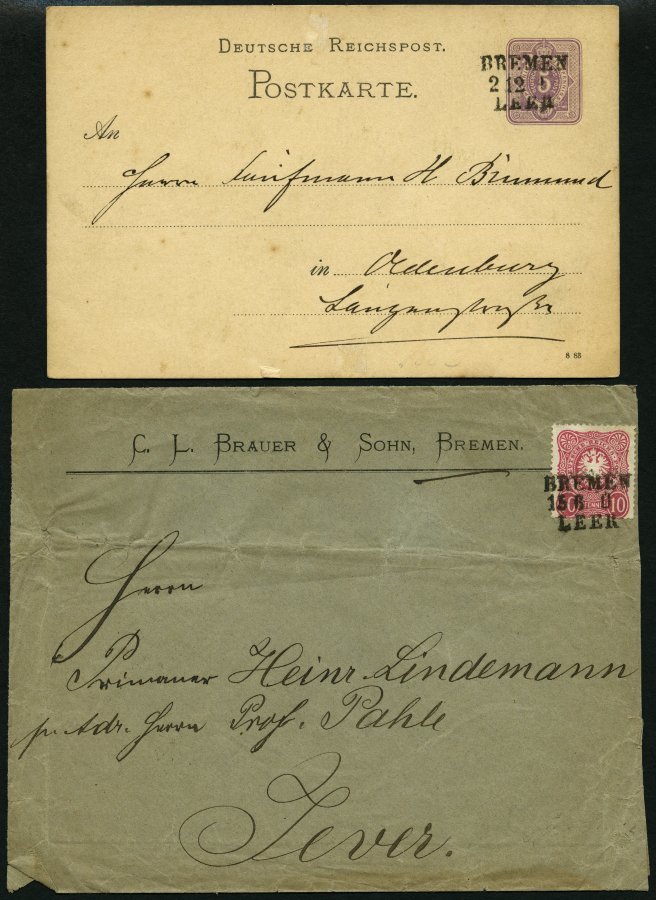 DEUTSCHE REICHSPOST.
POSTKARTE.
5
BREMEN
2 12 I
LEER
An
Herrn Kaufmann H
in Oldenburg
Langenstraße
8 83
C. L. BRAUER & SOHN, BREMEN.
10 PFENNIG 10
BREMEN
15 8 II
LEER
Herrn
Primaner Heinr. Lindemann
pr. Adr. Herrn Prof. Pahle
Jever.